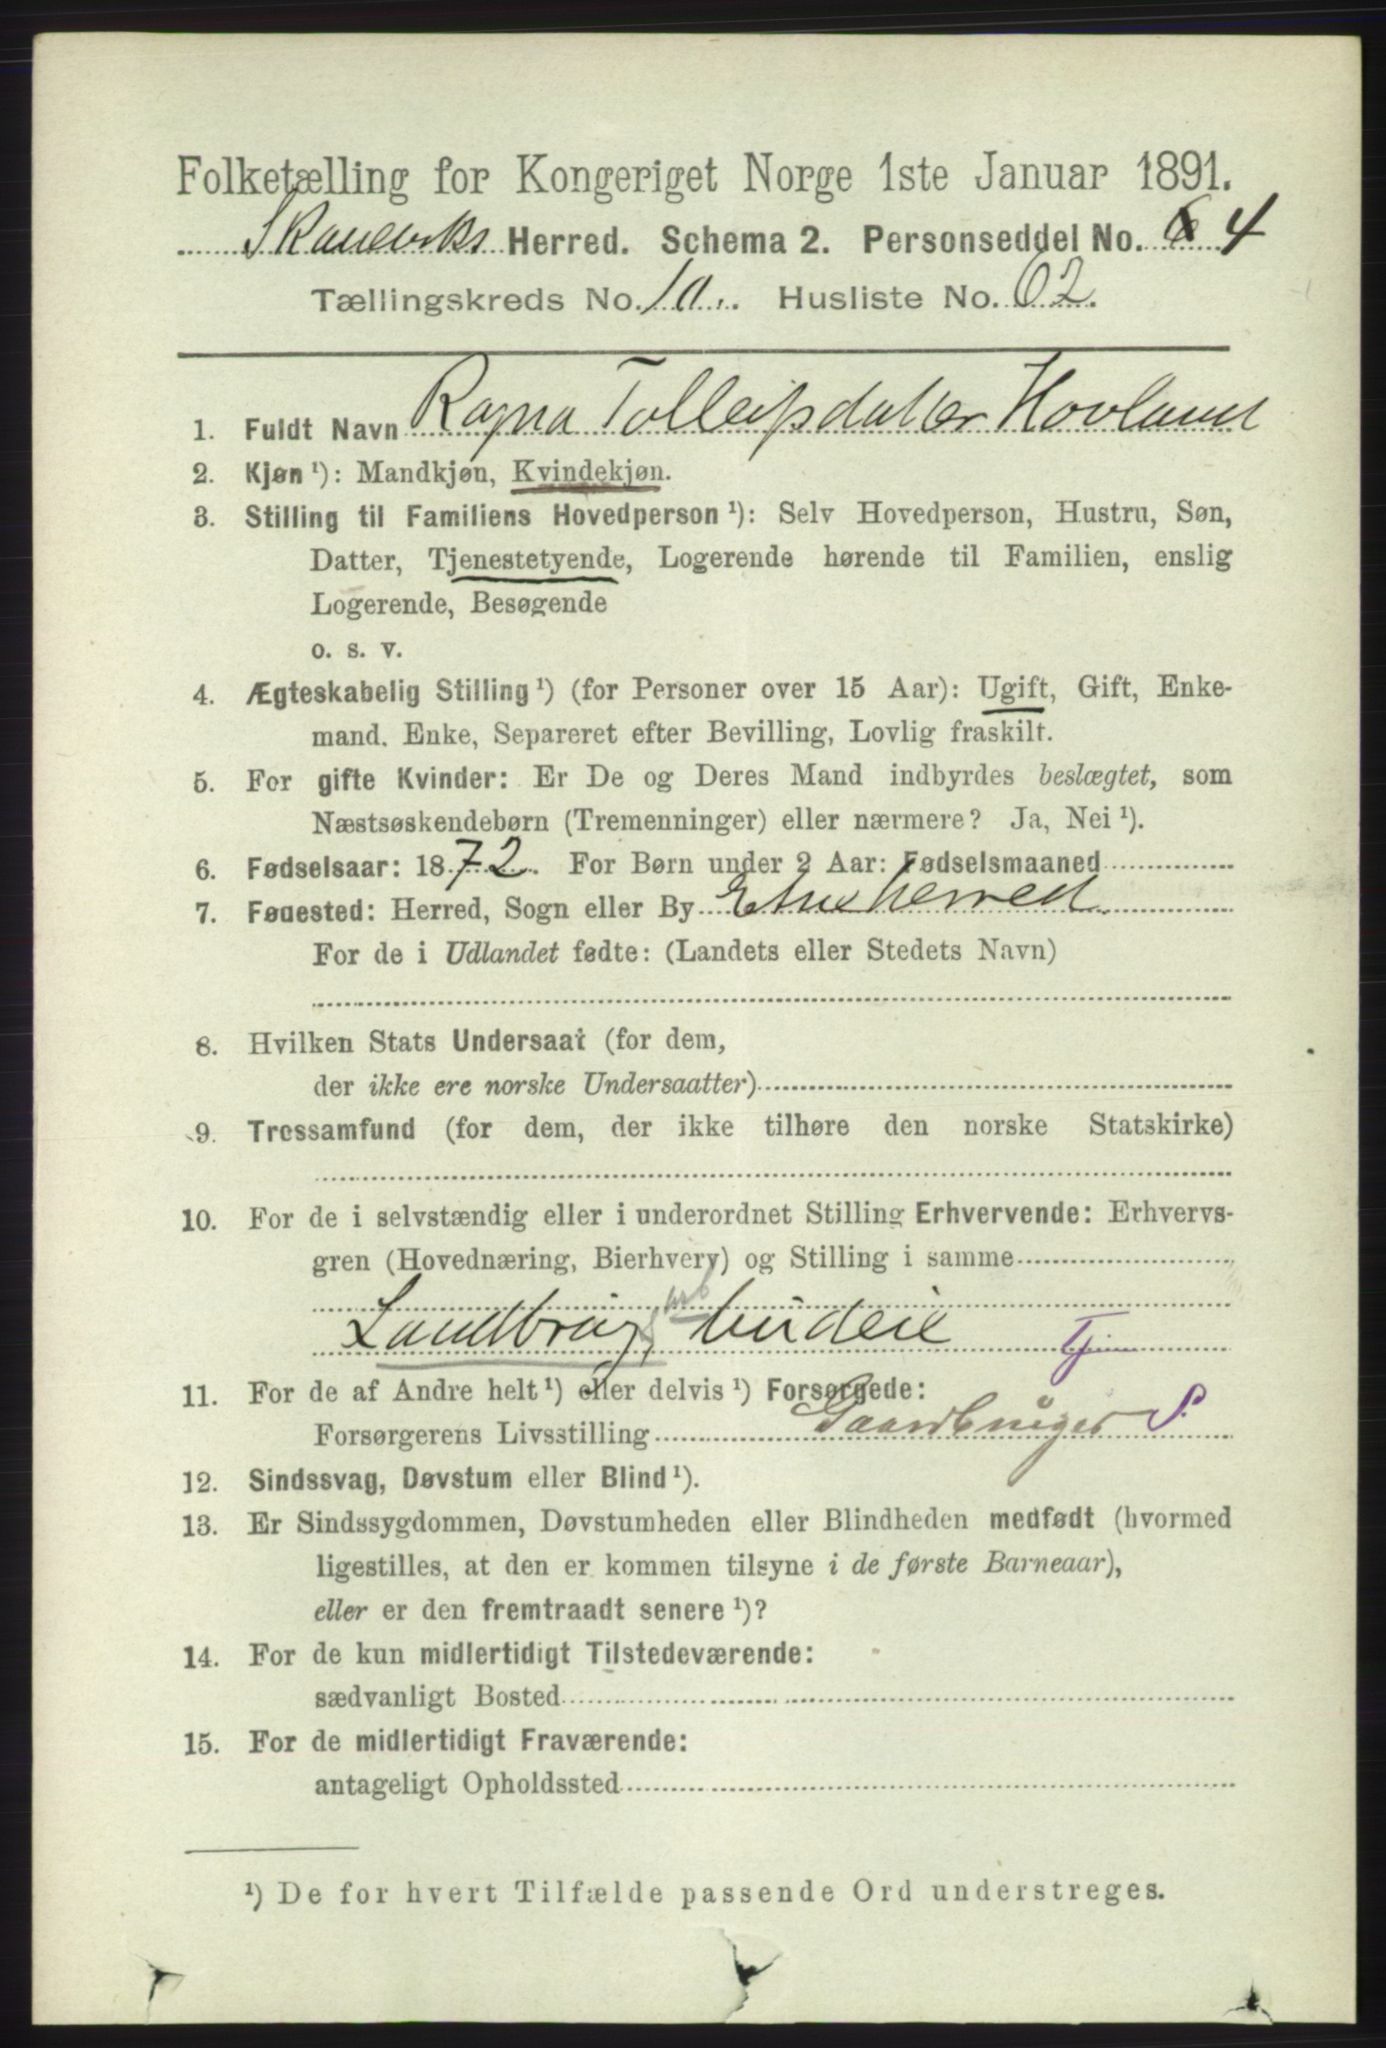 Folketælling for Kongeriget Norge 1ste Januar 1891.
Skaneviks Herred. Schema 2. Personseddel No. 6 4
Tællingskreds No. 10. Husliste No. 62.
1. Fuldt Navn Ragna Tolleifsdatter Hovland
2. Kjøn ¹): Mandkjøn, Kvindekjøn.
3. Stilling til Familiens Hovedperson ¹): Selv Hovedperson, Hustru, Søn,
Datter, Tjenestetyende, Logerende hørende til Familien, enslig
Logerende, Besøgende
o. s. v.
4. Ægteskabelig Stilling ¹) (for Personer over 15 Aar): Ugift, Gift, Enke-
mand, Enke, Separeret efter Bevilling, Lovlig fraskilt.
5. For gifte Kvinder: Er De og Deres Mand indbyrdes beslægtet, som
Næstsøskendebørn (Tremenninger) eller nærmere? Ja, Nei ¹).
6. Fødselsaar: 1872. For Børn under 2 Aar: Fødselsmaaned
7. Føuested: Herred, Sogn eller By Etne herred
For de i Udlandet fødte: (Landets eller Stedets Navn)
8. Hvilken Stats Undersaat (for dem,
der ikke ere norske Undersaatter)
9. Trossamfund (for dem, der ikke tilhøre den norske Statskirke)
10. For de i selvstændig eller i underordnet Stilling Erhvervende: Erhvervs-
gren (Hovednæring, Bierhverv) og Stilling i samme
Landbrug, arb budeie Tj
11. For de af Andre helt ¹) eller delvis ¹) Forsørgede:
Forsørgerens Livsstilling Gaardbruger S.
12. Sindssvag, Døvstum eller Blind ¹).
13. Er Sindssygdommen, Døvstumheden eller Blindheden medfødt (hvormed
ligestilles, at den er kommen tilsyne i de første Barneaar),
eller er den fremtraadt senere ¹)?
14. For de kun midlertidigt Tilstedeværende:
sædvanligt Bosted
15. For de midlertidigt Fraværende:
antageligt Opholdssted
¹) De for hvert Tilfælde passende Ord understreges.